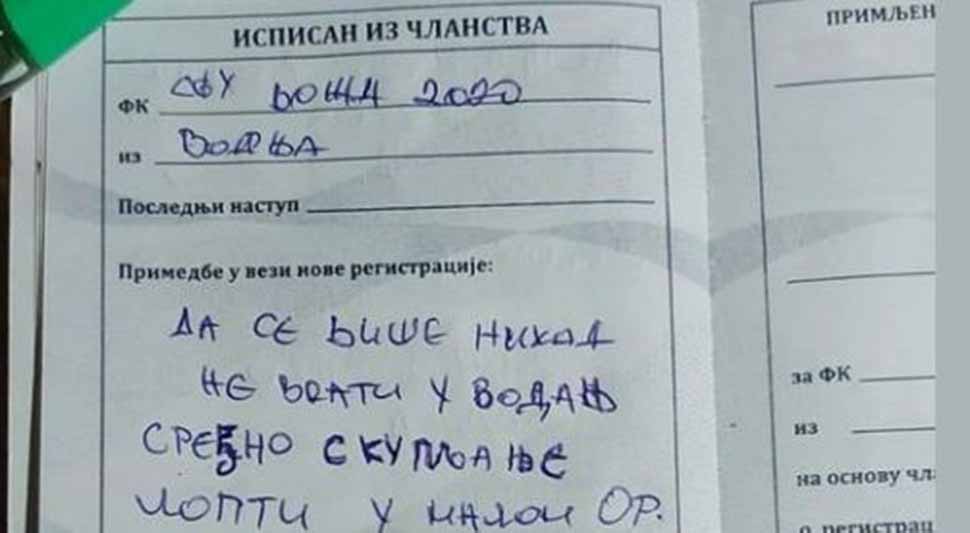 ИСПИСАН ИЗ ЧЛАНСТВА
ФК СФУ ВОЖД 2020
из ВОДЊА
Последњи наступ
Примедбе у вези нове регистрације:
ДА СЕ ВИШЕ НИКАД
НЕ ВРАТИ У ВОДАЊ
СРЕЋНО СКУПЉАЊЕ
ЛОПТИ У МАЛОМ ОР.
ПРИМЉЕН
за ФК
из
на основу чл
о регистрац